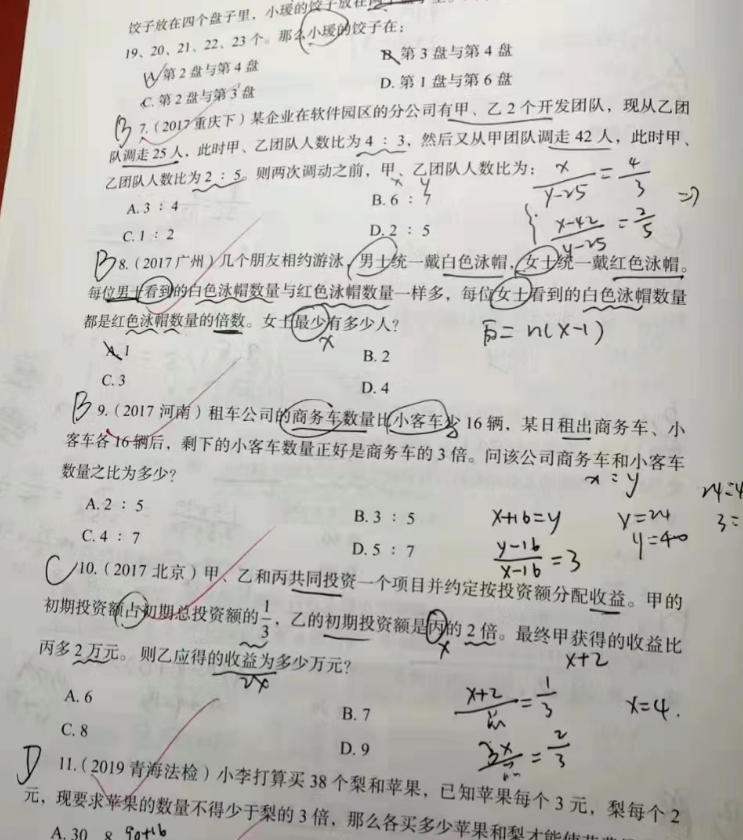 饺子放在四个盘子里,小瑷的饺子放在
19、20、21、22、23 个。那么小瑷的饺子在:
A. 第 2 盘与第 4 盘
B. 第 3 盘与第 4 盘
C. 第 2 盘与第 3 盘
D. 第 1 盘与第 6 盘
B 7.(2017 重庆下)某企业在软件园区的分公司有甲、乙 2 个开发团队,现从乙团
队调走 25 人,此时甲、乙团队人数比为 4 : 3,然后又从甲团队调走 42 人,此时甲、
乙团队人数比为 2 : 5。则两次调动之前,甲、乙团队人数比为:
x y
x/(y-25) = 4/3 ⇒
A. 3 : 4
B. 6 : 7
(x-42)/(y-25) = 2/5
C. 1 : 2
D. 2 : 5
B 8.(2017 广州)几个朋友相约游泳,男士统一戴白色泳帽,女士统一戴红色泳帽。
每位男士看到的白色泳帽数量与红色泳帽数量一样多,每位女士看到的白色泳帽数量
都是红色泳帽数量的倍数。女士最少有多少人?
x
= n(x-1)
A. 1
B. 2
C. 3
D. 4
B 9.(2017 河南)租车公司的商务车数量比小客车少 16 辆,某日租出商务车、小
客车各 16 辆后,剩下的小客车数量正好是商务车的 3 倍。问该公司商务车和小客车
数量之比为多少?
x : y
A. 2 : 5
B. 3 : 5
x+16=y
y=24
C. 4 : 7
D. 5 : 7
(y-16)/(x-16) = 3
C 10.(2017 北京)甲、乙和丙共同投资一个项目并约定按投资额分配收益。甲的
初期投资额占初期总投资额的 1/3,乙的初期投资额是丙的 2 倍。最终甲获得的收益比
x
x+2
丙多 2 万元。则乙应得的收益为多少万元?
2x
A. 6
B. 7
x+2
= 1/3
x=4.
C. 8
D. 9
3x
= 2/3
D 11.(2019 青海法检)小李打算买 38 个梨和苹果,已知苹果每个 3 元,梨每个 2
元,现要求苹果的数量不得少于梨的 3 倍,那么各买多少苹果和梨才能使花费
A. 30 8 90+16